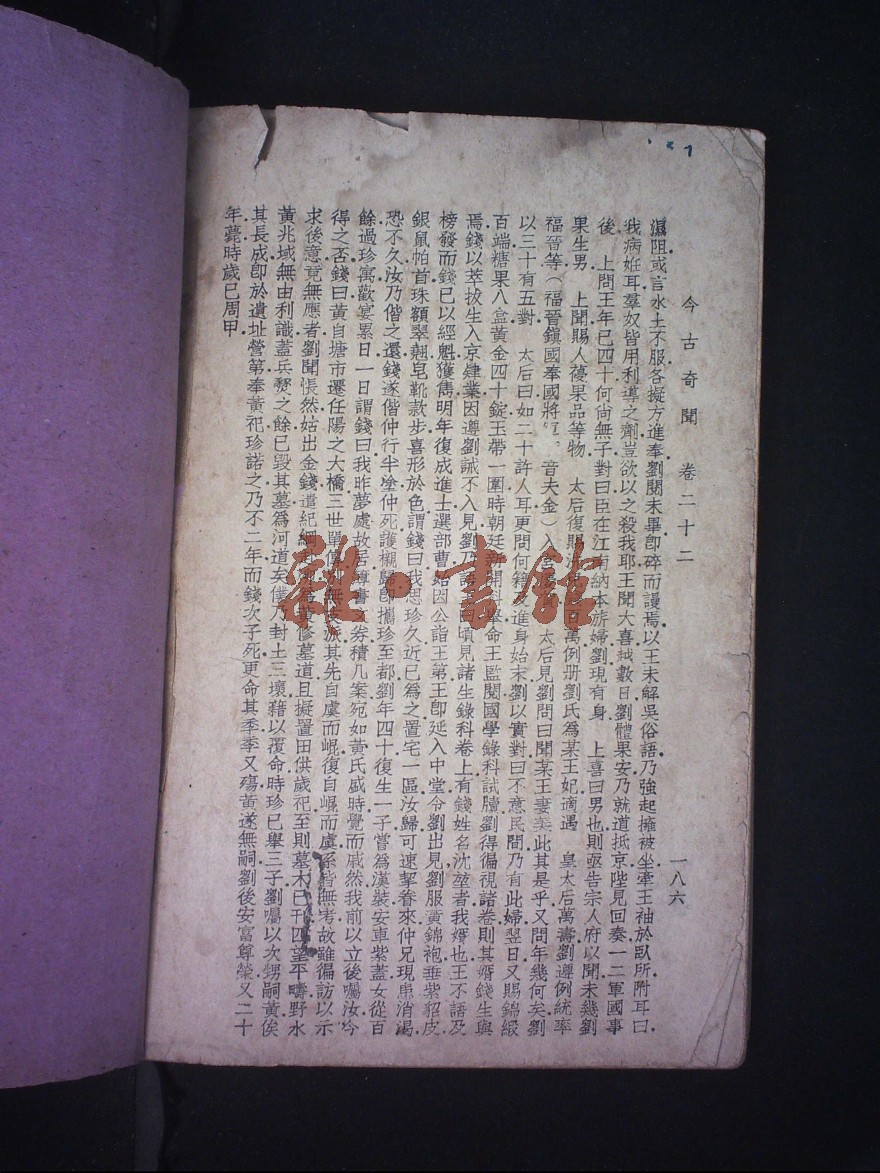 今古奇聞 卷二十二 一八六
滯阻或言水土不服各擬方進奉劉閱未畢卽碎而謾焉以王未解吳俗語乃強起擁被坐牽王袖於臥所附耳曰
我病妊耳羣奴皆用利導之劑豈欲以之殺我耶王聞大喜越數日劉體果安乃就道抵京陛見回奏一二軍國事
後 上問王年已四十何尙無子對曰臣在江南納本旗婦劉現有身 上喜曰男也則亟告宗人府以聞未幾劉
果生男 上聞賜人葠果品等物 太后復賜洗 百萬例册劉氏爲某王妃適遇 皇太后萬壽劉遵例統率
福晉等（福晉鎭國奉國將 音夫金）入宮 太后見劉問曰聞某王妻美此其是乎又問年幾何矣劉
以三十有五對 太后曰如二十許人耳更問何籍及進身始末劉以實對曰不意民間乃有此婦翌日又賜錦緞
百端糖果八盒黃金四十錠玉帶一圍時朝廷新開科舉命王監閱國學錄科試牘劉得徧視諸卷則其婿錢生與
焉錢以萃拔生入京肄業因遵劉誡不入見劉乃 曰頃見諸生錄科卷上有錢姓名沈堃者我婿也王不語及
榜發而錢已以經魁獲雋明年復成進士選部曹始因公詣王第王卽延入中堂令劉出見劉服黃錦袍垂紫貂皮
銀鼠帕首珠額翠翹皂靴款步喜形於色謂錢曰我思珍久近已爲之置宅一區汝歸可速挈眷來仲兄現患消渴
恐不久汝乃偕之還錢遂偕仲行半塗仲死護櫬歸卽攜珍至都劉年四十復生一子嘗爲漢裝安車紫蓋女從百
餘過珍寓歡宴累日一日謂錢曰我昨夢處故居簿書文券積几案宛如黃氏盛時覺而戚然我前以立後囑汝今
得之否錢曰黃自塘市遷任陽之大橋三世單傳別無支派其先自虞而崐復自崐而虞系皆無考故雖徧訪以示
求後意竟無應者劉聞悵然姑出金錢遣紀綱 爲黃修墓道且擬置田供歲祀至則墓木已刊四望平疇野水
黃兆域無由利識蓋兵燹之餘已毀其墓爲河道矣僕乃封土三壞藉以覆命時珍已舉三子劉囑以次甥嗣黃俟
其長成卽於遺址營第奉黃祀珍諾之乃不二年而錢次子死更命其季季又殤黃遂無嗣劉後安富尊榮又二十
年薨時歲已周甲